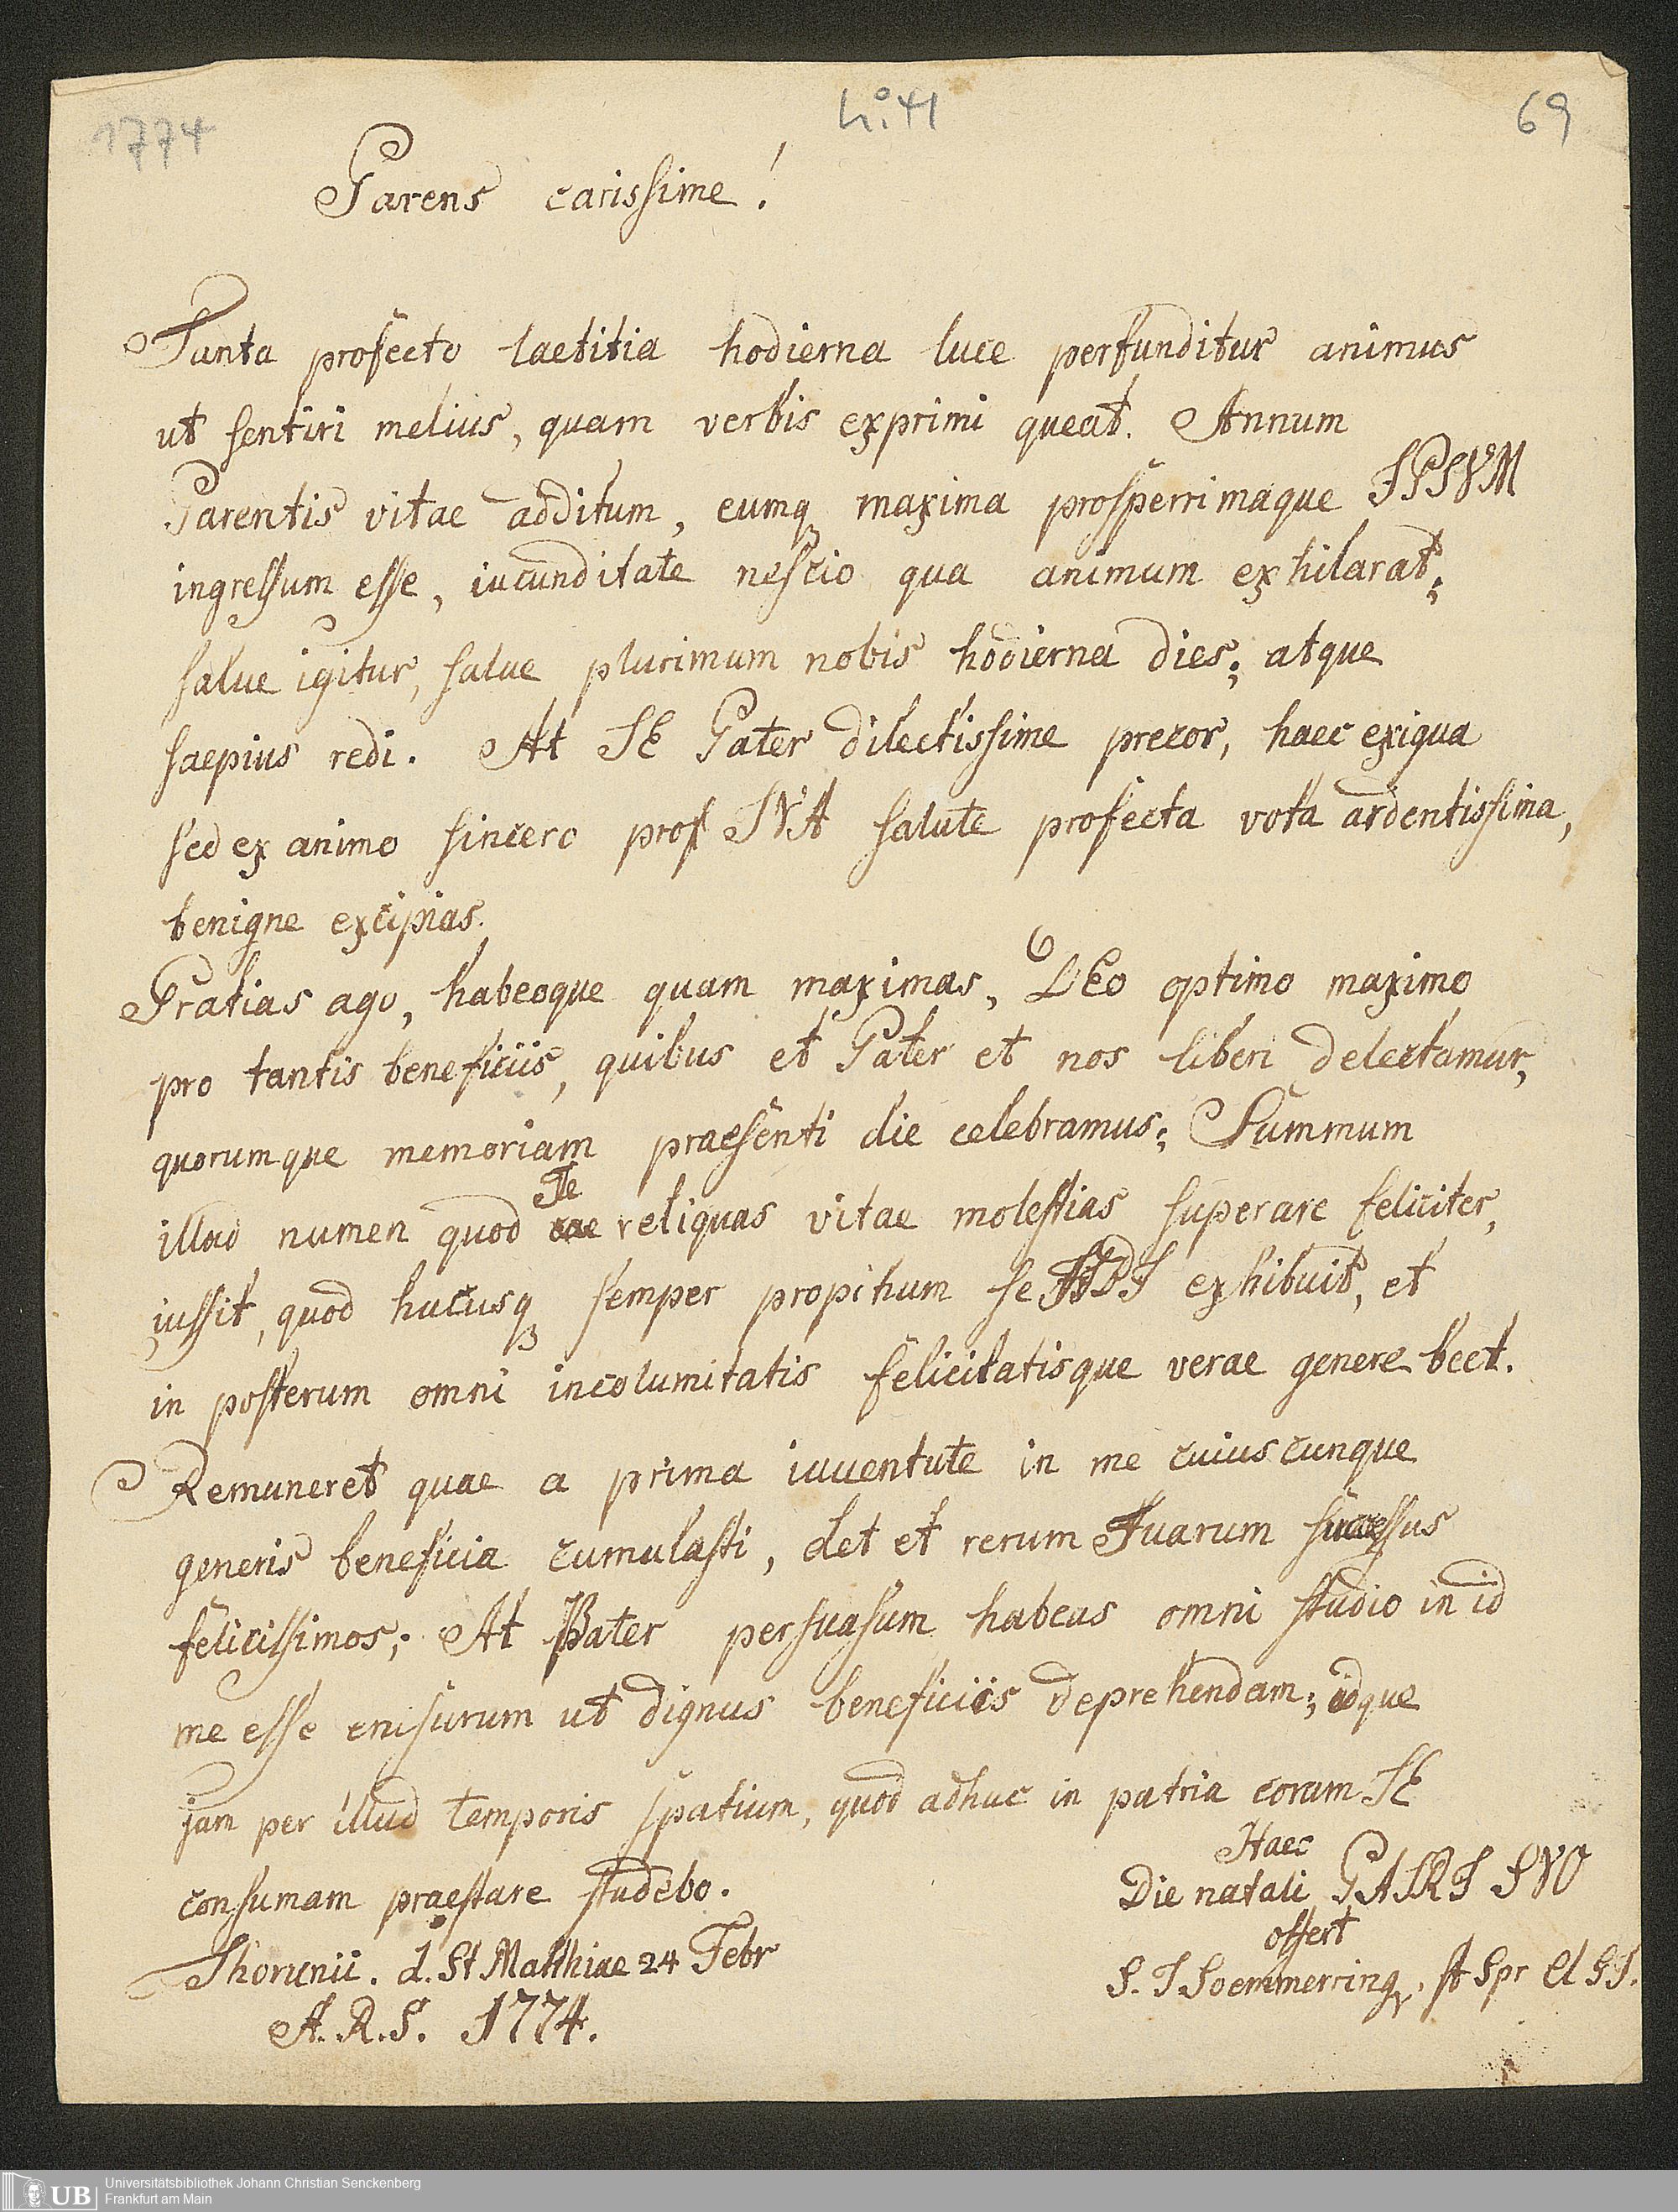 1774
n:o 41
69
Parens carissime!
Tanta profecto laetitia hodierna luce perfunditur animus
ut sentiri melius, quam verbis exprimi queat. Annum
Parentis vitae additum, eumq maxima prosperrimaque IPSVM
ingressum esse, iucunditate nescio qua animum exhilarat;
salue igitur, salue plurimum nobis hodierna dies; atque
saepius redi. At TE Pater dilectissime precor, haec exigua
sed ex animo sincero pro TVA salute profecta vota ardentissima,
benigne excipias.
Gratias ago, habeoque quam maximas, DEo optimo maximo
pro tantis beneficiis, quibus et Pater et nos liberi delectamur,
quorumque memoriam praesenti die celebramus; Summum
illud numen quod Te reliquas vitae molestias superare feliciter,
iussit, quod hucusq semper propitium se TIBI exhibuit, et
in posterum omni incolumitatis felicitatisque verae genere beet.
Remuneret quae a prima iuuentute in me cuiuscunque
generis beneficia cumulasti, det et rerum Tuarum successus
felicissimos; At Pater persuasum habeas omni studio in id
me esse enisurum ut dignus beneficiis deprehendam; idque
jam per illud temporis spatium, quod adhuc in patria coram TE
consumam praestare studebo.
Thorunii. d. St Matthiae 24 Febr
A. R. S. 1774.
Haec
Die natali PATRI SVO
offert
S. T. Soemmerring,
UB
Universitätsbibliothek Johann Christian Senckenberg
Frankfurt am Main